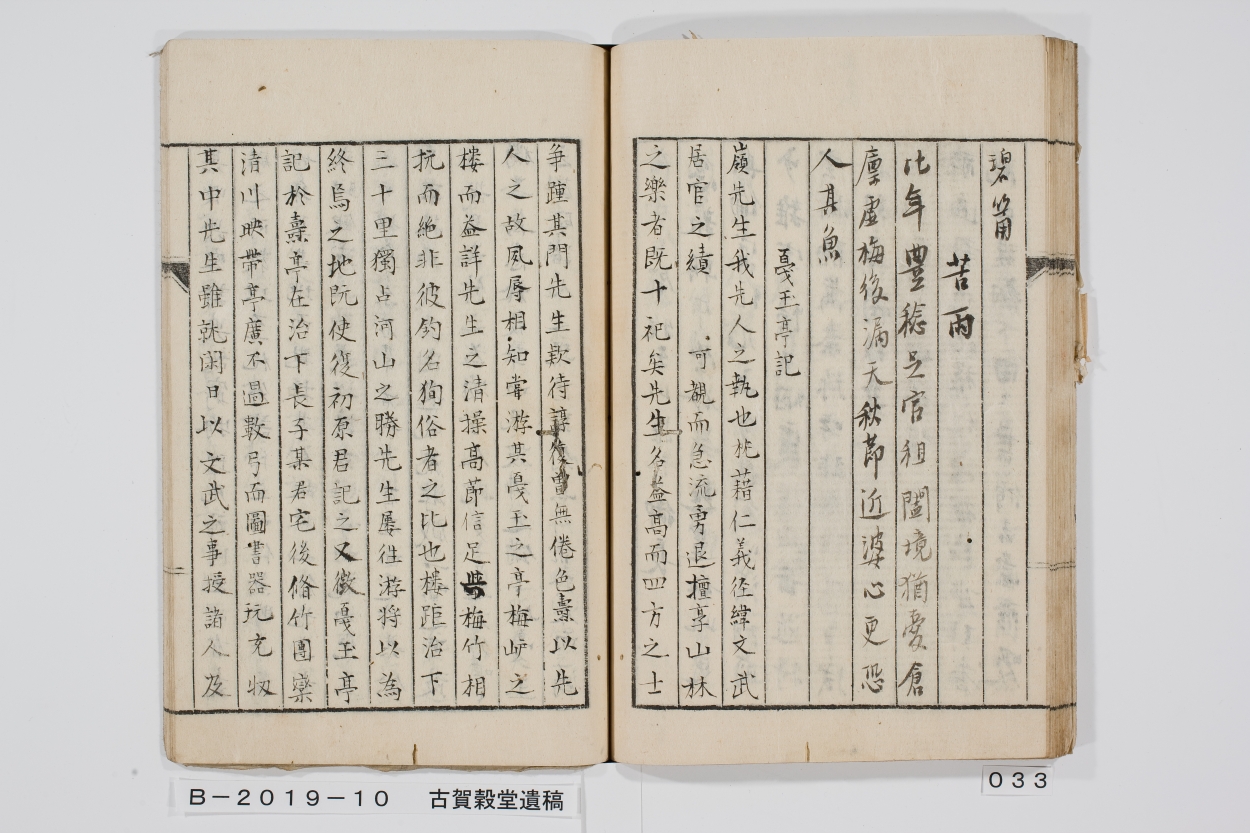 碧筩
苦雨
比年豊稔足官租闔境猶憂倉
廩虚梅後漏天秋節近婆心更恐
人其魚
戞玉亭記
嶺先生我先人之執也枕藉仁義径緯文武
居官之績可観而急流勇退擅享山林
之樂者既十祀矣先生名益高而四方之士
争踵其門先生欵待諄復曽無倦色燾以先
人之故夙辱相知甞游其戞玉之亭梅岾之
樓而益詳先生之清操高節信足與梅竹相
抗而絶非彼釣名狥俗者之比也樓距治下
三十里獨占河山之勝先生屡徃游将以為
終焉之地既使復初原君記之又徴戞玉亭
記於燾亭在治下長子某君宅後脩竹團欒
清川映帶亭廣不過數弓而圖書器玩充牣
其中先生雖就閑日以文武之事授諸人及
B－2019－10 古賀穀堂遺稿
033